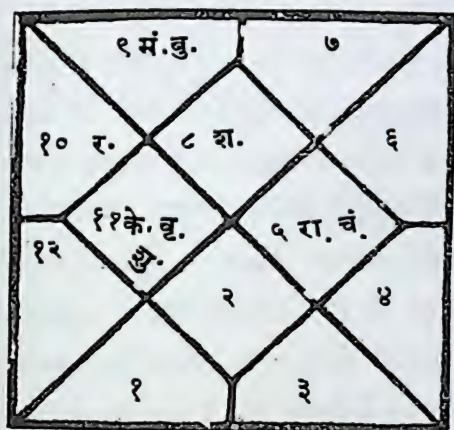 ९ मं. बु.
७
१० र.
८ श.
६
११ के. वृ.
शु.
५ रा. चं.
१२
२
४
१
३